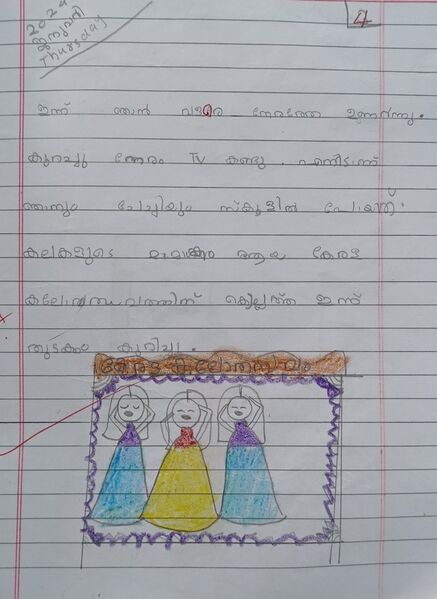 2024
ജനുവരി
Thursday
4
ഇന്ന് ഞാൻ വളരെ നേരത്തേ ഉണർന്നു.
കുറച്ചു നേരം TV കണ്ടു. പന്നീടന്ന്
ഞാനും ചേച്ചിയും സ്കൂളിൽ പോയത്.
കലകളുടെ മാമാങ്കം ആയ കേരള
കലോത്സവത്തിന് കൊല്ലത്ത് ഇന്ന്
തുടക്കം കുറിച്ചു.
കേരള കലോത്സവം